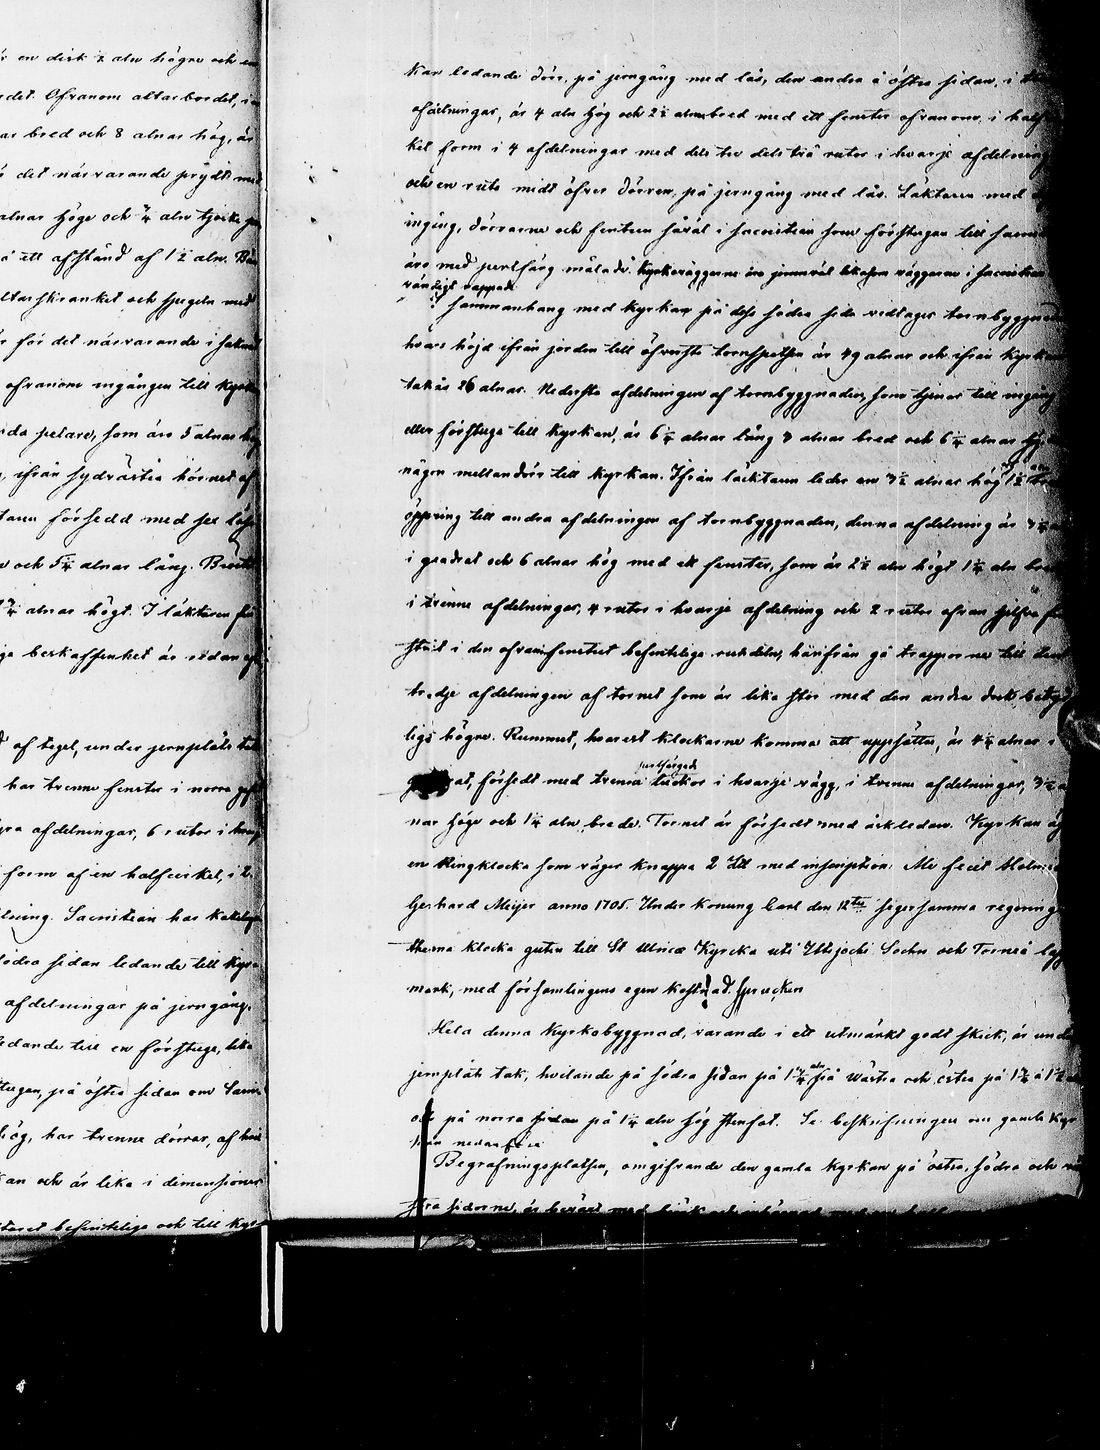 en disk 2 aln högre och en
rdet. Ofvanom altarbordet, i
ar bred och 8 alnar hög, är
det närvarande prydt med
alnar höge och ¾ aln tjocka
å ett afstånd af 1½ aln.
altarskranket och spegeln med
för det närvarande i saknad
ofvanom ingången till kyrk
ida pelare, som äro 5 alnar
ifrån sydvästra hörnet af
försedd med sex
och 5¼ alnar lång. Bröst
¾ alnar högt. I läktaren
beskaffenhet är sedan
af tegel, under jernplåts tak
har trenne fenster i norra
afdelningar, 6 rutor i hvar
form af en halfcirkel, i 2
Sacristian har
södra sidan ledande till kyr
afdelningar på jerngång.
ledande till en förstuga, lika
på östra sidan om Sacri
hög, har trenne dörrar, af
an och är lika i dimensioner
befintelige och till kyr
kan ledande dörr, på jerngång med lås, den andra å östra sidan, i
afdelningar, är 4 aln hög och 2½ alnar bred med ett fenster ofvanom i halfcir
kel form i 4 afdelningar med dels tre dels två rutor i hvarje afdelning
och en ruta midt öfver dörren, på jerngång med lås. Läktaren med
ingång, dörrarne och fenstren såväl i sacristian som förstugan till samma
äro med perlfärg målade. Kyrkoväggarne äro jemnväl likasom väggarne i sacristian
råndigt rappade
I sammanhang med Kyrkan på dess södra sida vidtager tornbyggnaden
hvars höjd ifrån jorden till öfversta tornspetsen är 49 alnar och ifrån Kyrkans
tak är 26 alnar. Nedersta afdelningen af tornbyggnaden, som tjenar till ingång
eller förstuga till Kyrkan, är 6¼ alnar lång 3 alnar bred och 6¼ alnar hög
någon mellandörr till kyrkan. Ifrån läcktaren leder en 3½ alnar hög 1½
öppning till andra afdelningen af tornbyggnaden, denna afdelning är
i qvadrat och 6 alnar hög med ett fenster, som är 2½ aln högt 1¼ aln bredt
i trenne afdelningar, 4 rutor i hvarje afdelning och 2 rutor ofvan
i den ofvanfenstret befintelige härifrån gå trapporne till den
tredje afdelningen af tornet som är lika stor med den andra dock betyd
ligt högre. Rummet, hvarest klockarne komma att uppsättas, är 4¼ alnar i
perlfärgade
försedt med trenne luckor i hvarje vägg, i trenne afdelningar, 3½ al
nar höge och 1¼ aln brede. Tornet är försedt med åskledare. Kyrkan äg
en Ringklocka som väger knappa 2 med inscription: Me fecit Holmiæ
Gerhard Meijer anno 1705. Under Konung Carl den 12te segersamma regering
thenna klocka guten till St Ulricæ Kyrcka uti Uttsjocki Sochn och Torneå lapp
mark, med församlingens egen kostnad. Sprucken
Hela denna Kyrkobyggnad, varande i ett utmärkt godt skick, är under
jernplåts tak, hvilande på södra sidan på 1¾ aln, på västra och östra på 1¾ à 1½
och på norra sidan på 1¼ aln hög stenfot. Se beskrifningen om gamla Kyr
kan nedanföre
Begrafningsplatsen, omgifvande den gamla Kyrkan på östra, södra och vä
stra sidorne, är